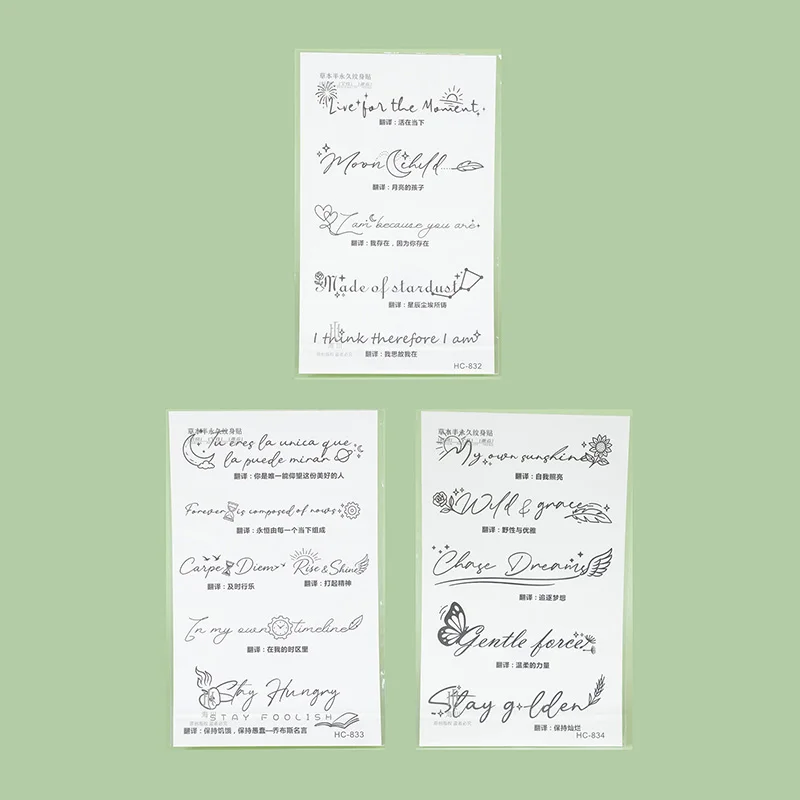 草本半永久纹身贴
Live for the Moment
翻译：活在当下
Moon Child
翻译：月亮的孩子
I am because you are
翻译：我存在，因为你存在
Made of stardust
翻译：星辰尘埃所铸
I think therefore I am
翻译：我思故我在
HC-832
草本半永久纹身贴
Tu eres la unica que
la puede mirar
翻译：你是唯一能仰望这份美好的人
Forever is composed of nows
翻译：永恒由每一个当下组成
Carpe Diem
翻译：及时行乐
Rise & Shine
翻译：打起精神
In my own timeline
翻译：在我的时区里
Stay Hungry
STAY FOOLISH
翻译：保持饥饿，保持愚蠢—乔布斯名言
HC-833
草本半永久纹身贴
My own sunshine
翻译：自我照亮
Wild & grace
翻译：野性与优雅
Chase Dreams
翻译：追逐梦想
Gentle force
翻译：温柔的力量
Stay golden
翻译：保持灿烂
HC-834